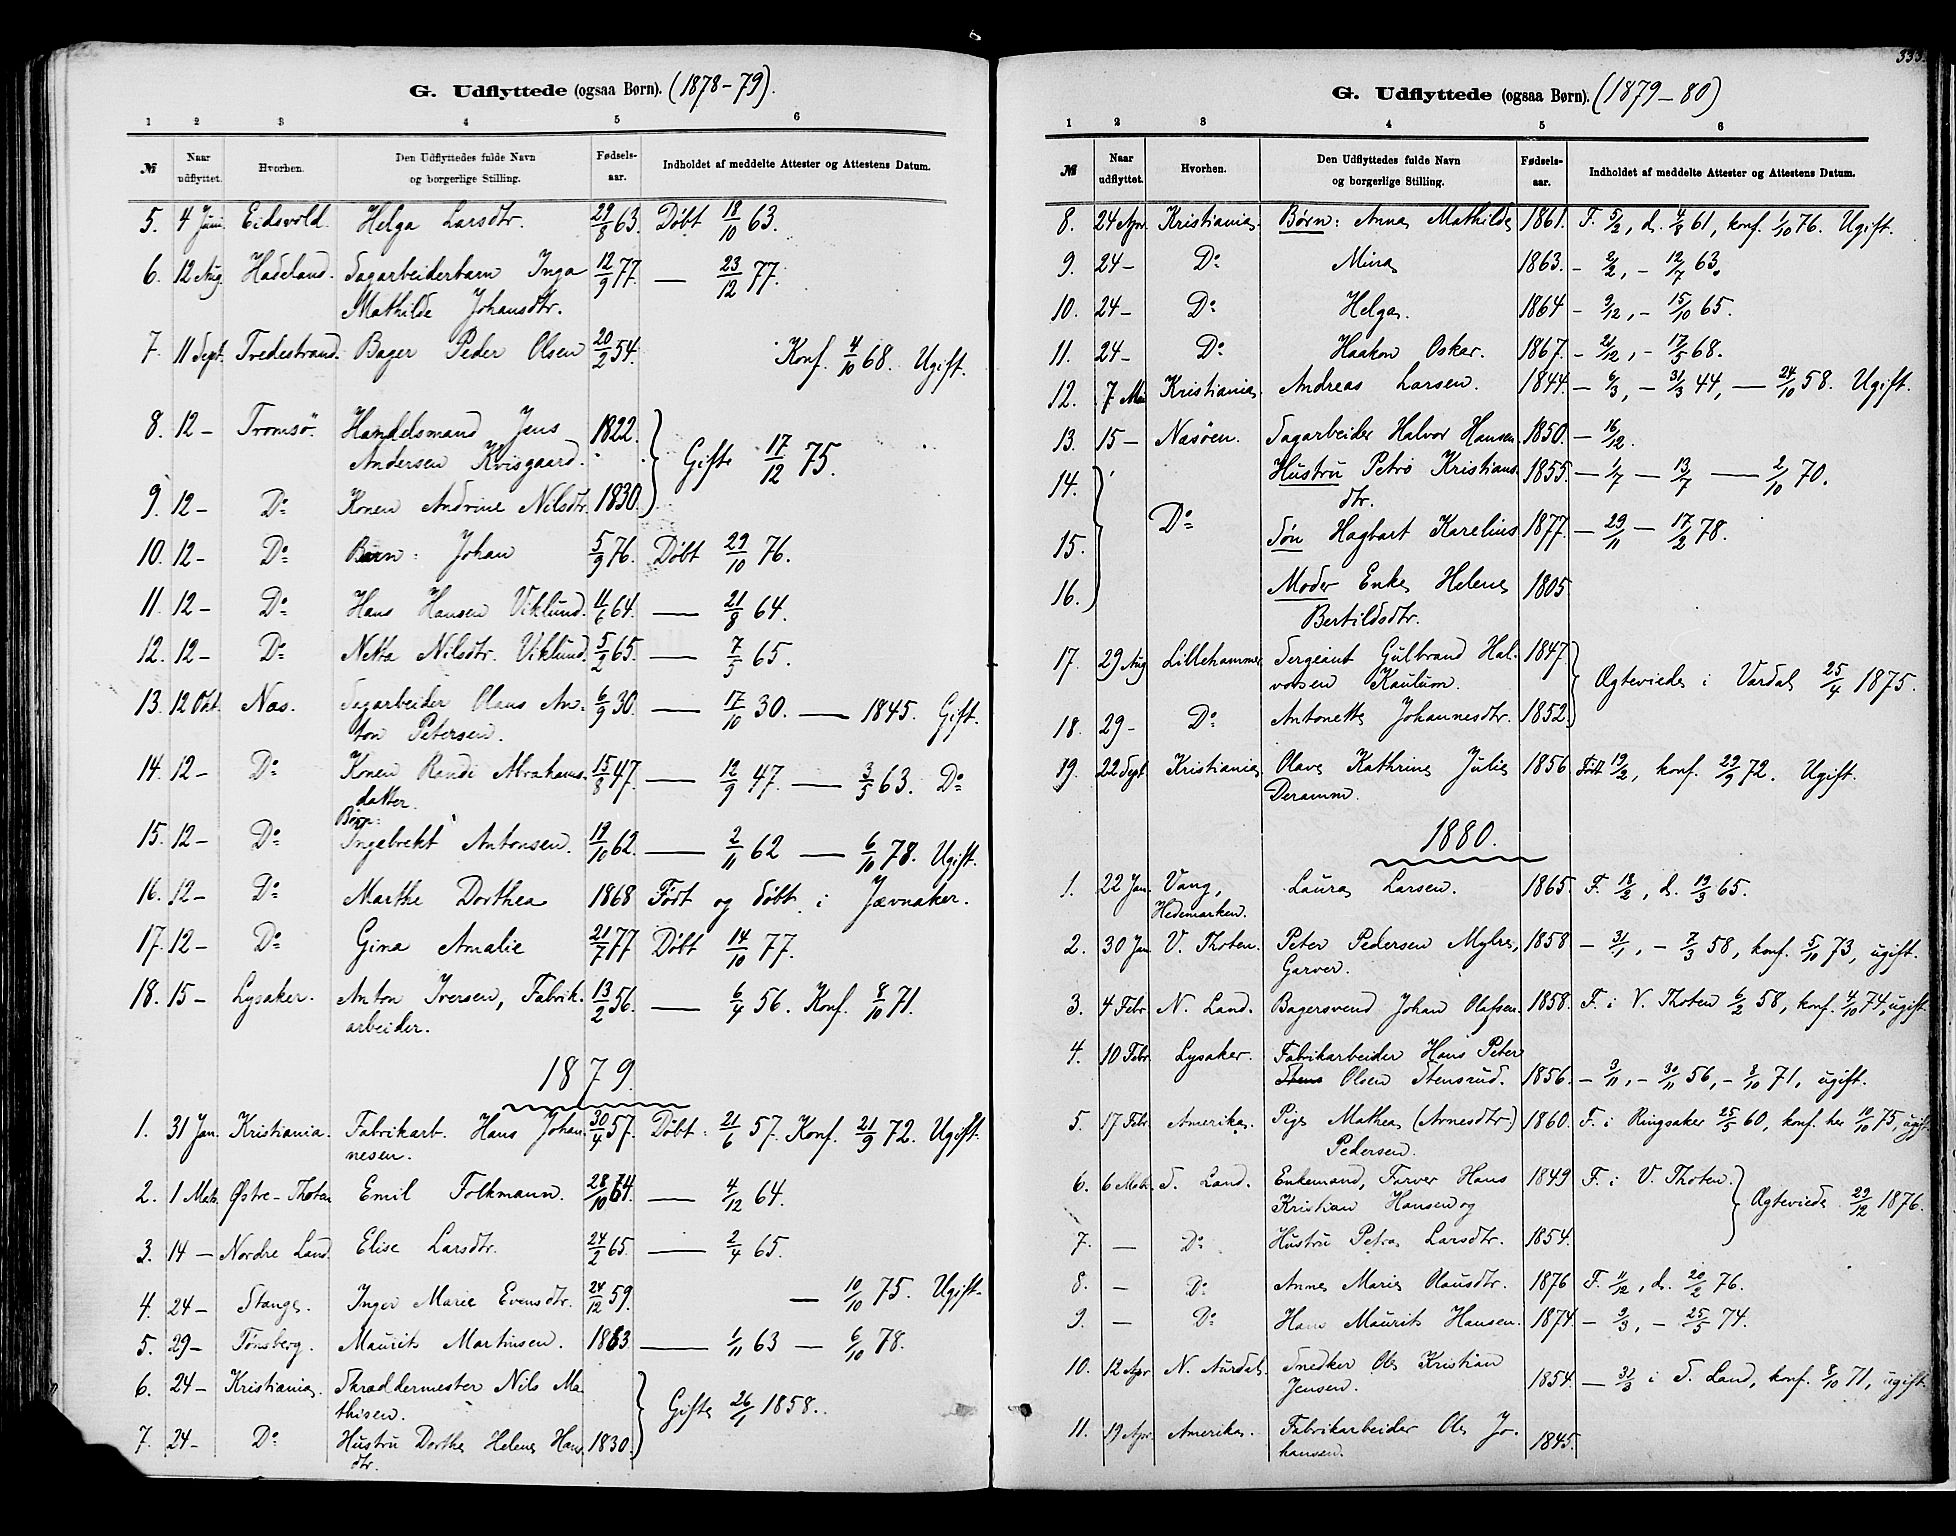 G. Udflyttede (ogsaa Børn). (1878-79).
1 2 3 4 5 6
№ Naar udflyttet. Hvorhen. Den Udflyttedes fulde Navn og borgerlige Stilling. Fødsels-aar. Indholdet af meddelte Attester og Attestens Datum.
5. 4 Juni Eidsvold. Helga Larsdtr. 29/8 63. Døbt 18/10 63.
6. 12 Aug. Hadeland. Sagarbeiderbarn Inga 12/9 77. — 23/12 77.
Mathilde Johansdtr.
7. 11 Sept. Tvedestrand. Bager Peder Olsen 20/2 54. Konf. 4/10 68. Ugift.
8. 12 - Tromsø. Handelsmand Jens 1822.
Andersen Kvisgaard. Gifte 17/12 75.
9. 12 - Do Konen Andrine Nilsdtr. 1830.
10. 12 - Do Barn: Johan 5/9 76. Døbt 29/10 76.
11. 12 - Do Hans Hansen Viklund. 11/6 64. — 21/8 64.
12. 12 - Do Netta Nilsdtr. Viklund. 5/2 65. — 7/5 65.
13. 12 Okt. Næs. Sagarbeider Olaus An- 6/9 30. — 17/10 30. — 1845. Gift.
ton Petersen.
14. 12 - Do Konen Randi Abrahams- 15/8 47. — 12/9 47 — 3/5 63. Do
datter.
Børn:
15. 12 - Do Ingebrekt Antonsen. 19/10 62. — 2/11 62 — 6/10 78. Ugift.
16. 12 - Do Marthe Dorthea 1868 Født og døbt i Jævnaker.
17. 12 - Do Gina Amalie 21/7 77 Døbt 14/10 77.
18. 15 - Lysaker. Anton Iversen, Fabrik- 13/2 56. — 6/4 56. Konf. 8/10 71.
arbeider.
1879.
1. 31 Jan. Kristiania. Fabrikarb. Hans Johan- 30/4 57. Døbt 21/6 57. Konf. 21/9 72. Ugift.
nesen.
2. 1 Mars Østre-Thoten Emil Folkmann. 28/10 64. — 4/12 64.
3. 14 - Nordre Land. Elise Larsdtr. 24/2 65. — 2/4 65.
4. 24 - Stange. Inger Marie Evensdtr. 24/12 59. — 10/10 75. Ugift.
5. 29 - Tønsberg. Maurits Martinsen. 1863 — 1/11 63 — 6/10 78.
6. 24 - Kristiania. Skræddermester Nils Ma-
thisen. Gifte 26/1 1858.
7. 24 - Do Hustru Dorthe Helene Hans 1830.
dtr.
333.
G. Udflyttede (ogsaa Børn). (1879-80)
1 2 3 4 5 6
№ Naar udflyttet. Hvorhen. Den Udflyttedes fulde Navn og borgerlige Stilling. Fødsels-aar. Indholdet af meddelte Attester og Attestens Datum.
8. 24 Apr. Kristiania. Børn: Anna Mathilde 1861. F. 5/2, d. 4/8 61, konf. 1/10 76. Ugift.
9. 24 - Do Mina 1863. - 2/2, - 12/7 63.
10. 24 - Do Helga. 1864 - 9/12, - 15/10 65.
11. 24 - Do Haakon Oskar. 1867. - 21/12, - 17/5 68.
12. 7 Mai Kristiania. Andreas Larsen. 1844. - 6/3, - 31/3 44, — 24/10 58. Ugift.
13. 15 - Næsøen. Sagarbeider Halvor Hansen. 1850. - 16/12.
14. Hustru Petra Kristians 1855. - 1/7 — 13/7 — 2/10 70.
dtr.
Do
15. Søn Hagbart Karelius 1877. — 29/11 — 17/2 78.
16. Moder Enke Helene 1805
Bertildsdtr.
17. 29 Aug Lillehammer Sergeant Gulbrand Hal- 1847.
vorsen Kaulum. Ægteviede i Vardal 25/4 1875.
18. 29 - Do Antonette Johannesdtr. 1852.
19. 22 Sept Kristiania. Olava Kathrine Julie 1856 Født 19/2, konf. 29/9 72. Ugift.
Deramm.
1880.
1. 22 Jan. Vang, Laura Larsen. 1865. F. 18/2, d. 19/3 65.
Hedemarken.
2. 30 Jan V. Thoten. Peter Pedersen Mylre, 1858 - 31/1, - 7/3 58, konf. 5/10 73, ugift.
Garver.
3. 4 Febr. N. Land. Bagersvend Johan Olafsen. 1858. F. i V. Thoten 6/2 58, konf. 4/10 74, ugift
4. 10 Febr. Lysaker. Fabrikarbeider Hans Peter
Stens Olsen Stensrud. 1856. - 3/11, - 30/11 56, - 8/10 71, ugift.
5. 17 Febr. Amerika. Pige Mathea (Arnesdtr.) 1860. F. i Ringsaker 25/5 60, konf. her 10/10 75, ugift
Pedersen.
6. 6 Mars. S. Land. Enkemand, Farver Hans 1849 F. i V. Thoten.
Kristian Hansen og Ægteviede 29/12 1876.
7. — Do Hustru Petra Larsdtr. 1854.
8. — Do Anne Marie Olausdtr. 1876 F. 11/12, d. 20/2 76.
9. — Do Hans Maurits Hansen. 1874. - 9/3, - 25/5 74.
10. 12 Apr N. Aurdal. Snedker Ole Kristian
Jensen. 1854. — 31/3 i S. Land, konf. 8/10 71, ugift.
11. 19 Apr. Amerika. Fabrikarbeider Ole Jo-
hansen. 1845.